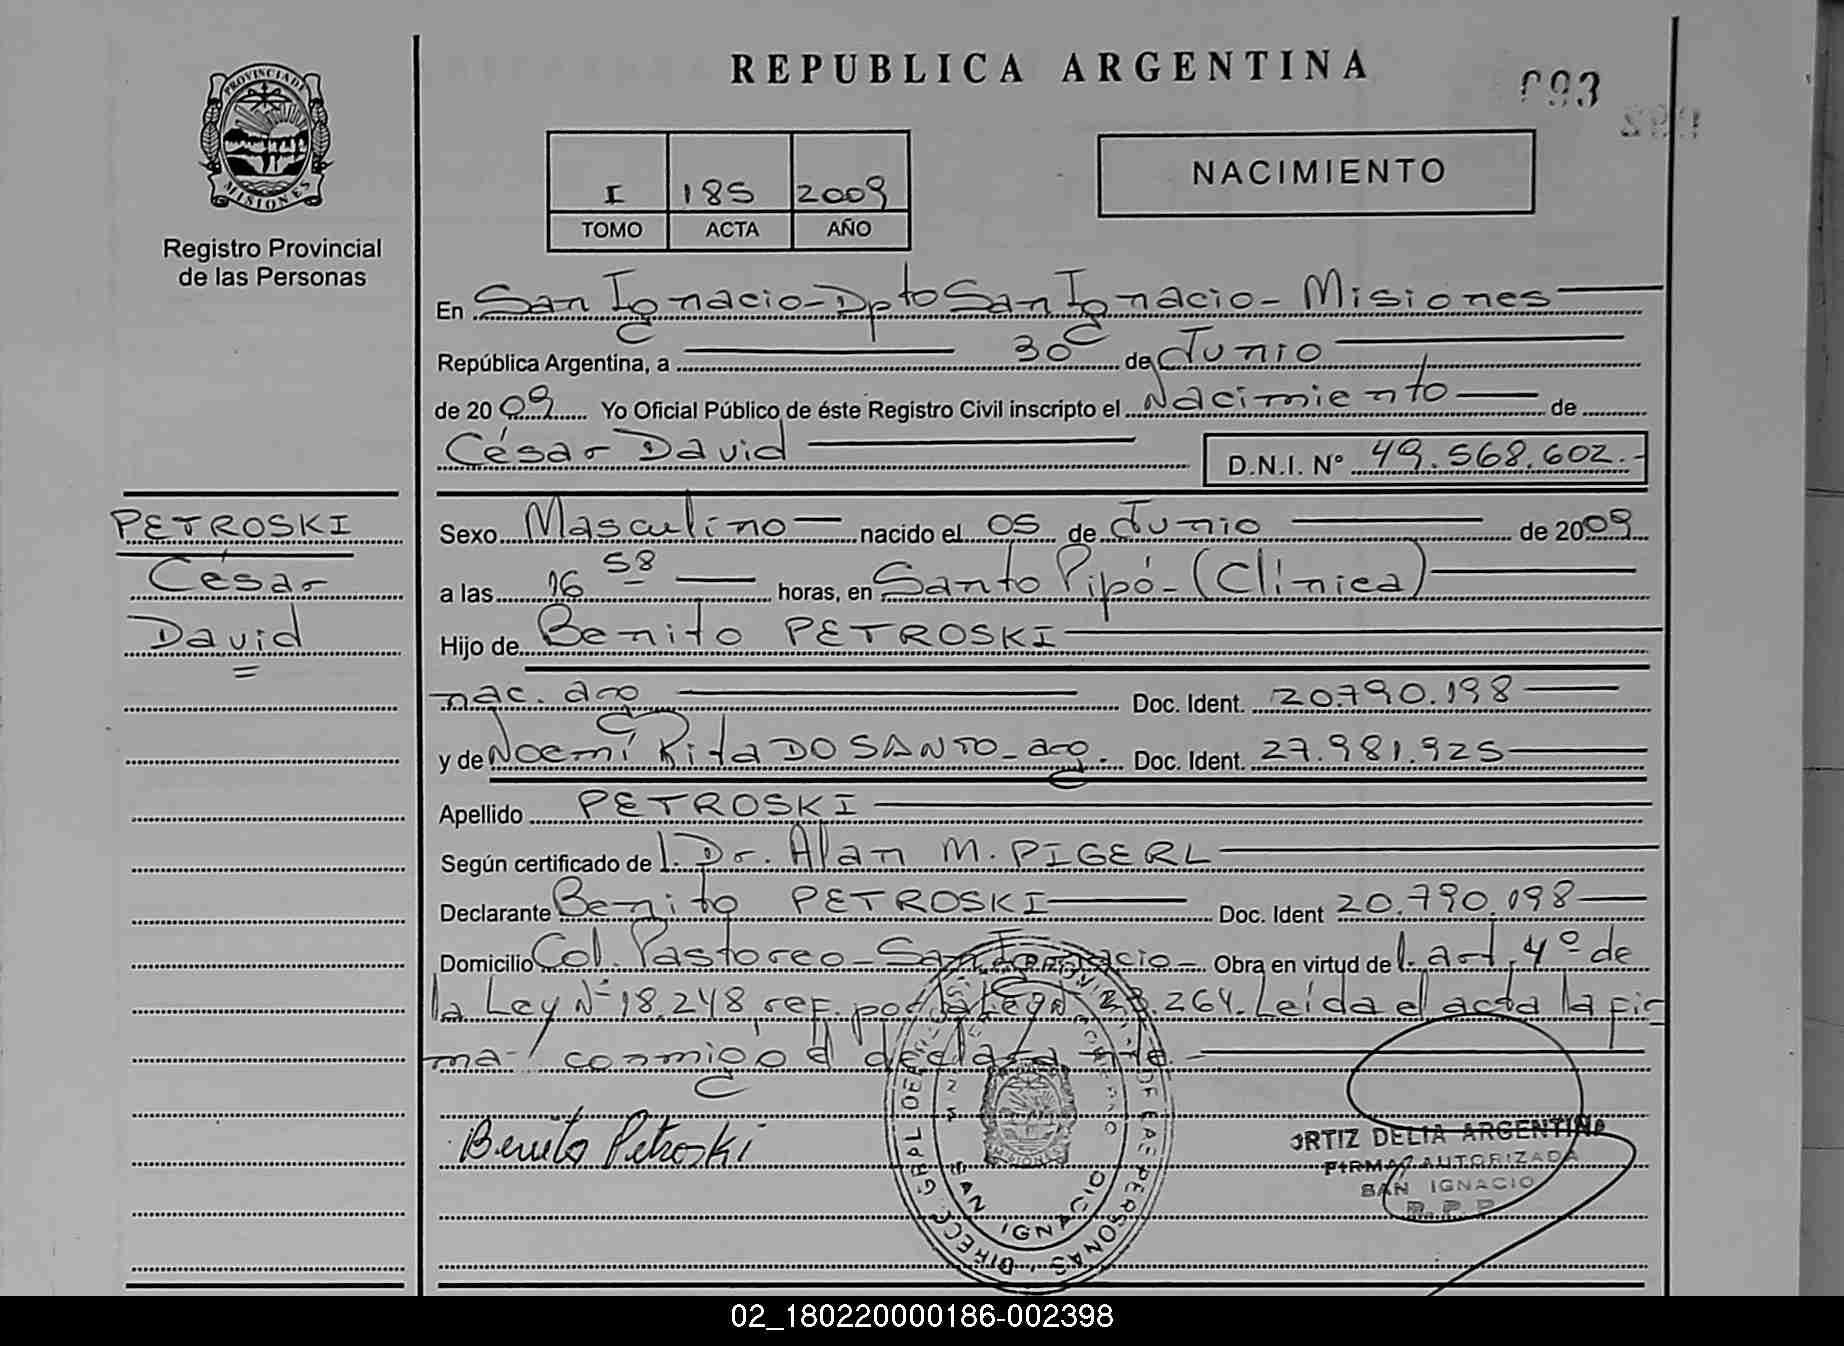 REPUBLICA ARGENTINA
093
PROVINCIA DE
MISIONES
Registro Provincial
de las Personas
I 185 2009
TOMO ACTA AÑO
NACIMIENTO
En San Ignacio - Dpto San Ignacio - Misiones
República Argentina, a 30 de Junio
de 2009 Yo Oficial Público de éste Registro Civil inscripto el Nacimiento de
César David D.N.I. Nº 49.568.602.-
PETROSKI
César
David
Sexo Masculino nacido el 05 de Junio de 2009
a las 16 58 horas, en Santo Pipó - (Clínica)
Hijo de Benito PETROSKI
nac. arg Doc. Ident. 20.790.198
y de Noemí Rita DO SANTO - arg. Doc. Ident. 27.981.925
Apellido PETROSKI
Según certificado de l. Dr. Alan M. PIGERL
Declarante Benito PETROSKI Doc. Ident 20.790.198
Domicilio Col. Pastoreo - San Ignacio - Obra en virtud de l. art. 4º de
la Ley Nº 18.248, ref. por la Ley Nº 23.264. Leída el acta la fir
ma conmigo el declarante.-
Benito Petroski
ORTIZ DELIA ARGENTINA
FIRMA AUTORIZADA
SAN IGNACIO
R. P. P.
SAN IGNACIO
02_180220000186-002398